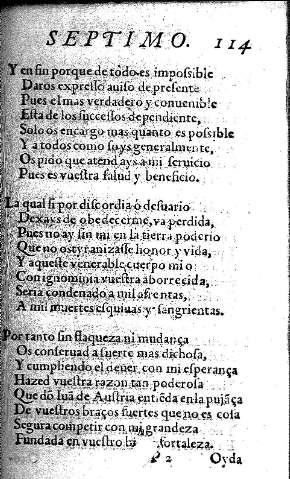 SEPTIMO. 114
Y en fin porque de todo es impossible
Daros expresso auiso de presente
Pues el mas verdadero y conuenible
Esta de los successos dependiente,
Solo os encargo mas quanto es possible
Y a todos como suys generalmente,
Os pido que atendays a mi seruicio
Pues es vuestra salud y beneficio.
La qual si por discordia ò desuario
Dexays de obedecerme, va perdida,
Pues no ay sin mi en la tierra poderio
Que no os tyranizasse honor y vida,
Y aqueste venerable cuerpo mio
Con ignominia vuestra aborrecida,
Seria condenado a mil afrentas,
A mil muertes esquiuas y sangrientas.
Por tanto sin flaqueza ni mudança
Os conseruad a suerte mas dichosa,
Y cumpliendo el deuer con mi esperança
Hazed vuestra razon tan poderosa
Que dõ Iuã de Austria entẽda en la pujãça
De vuestros braços fuertes que no es cosa
Segura competir con mi grandeza
Fundada en vuestro fortaleza.
P 2 Oyda